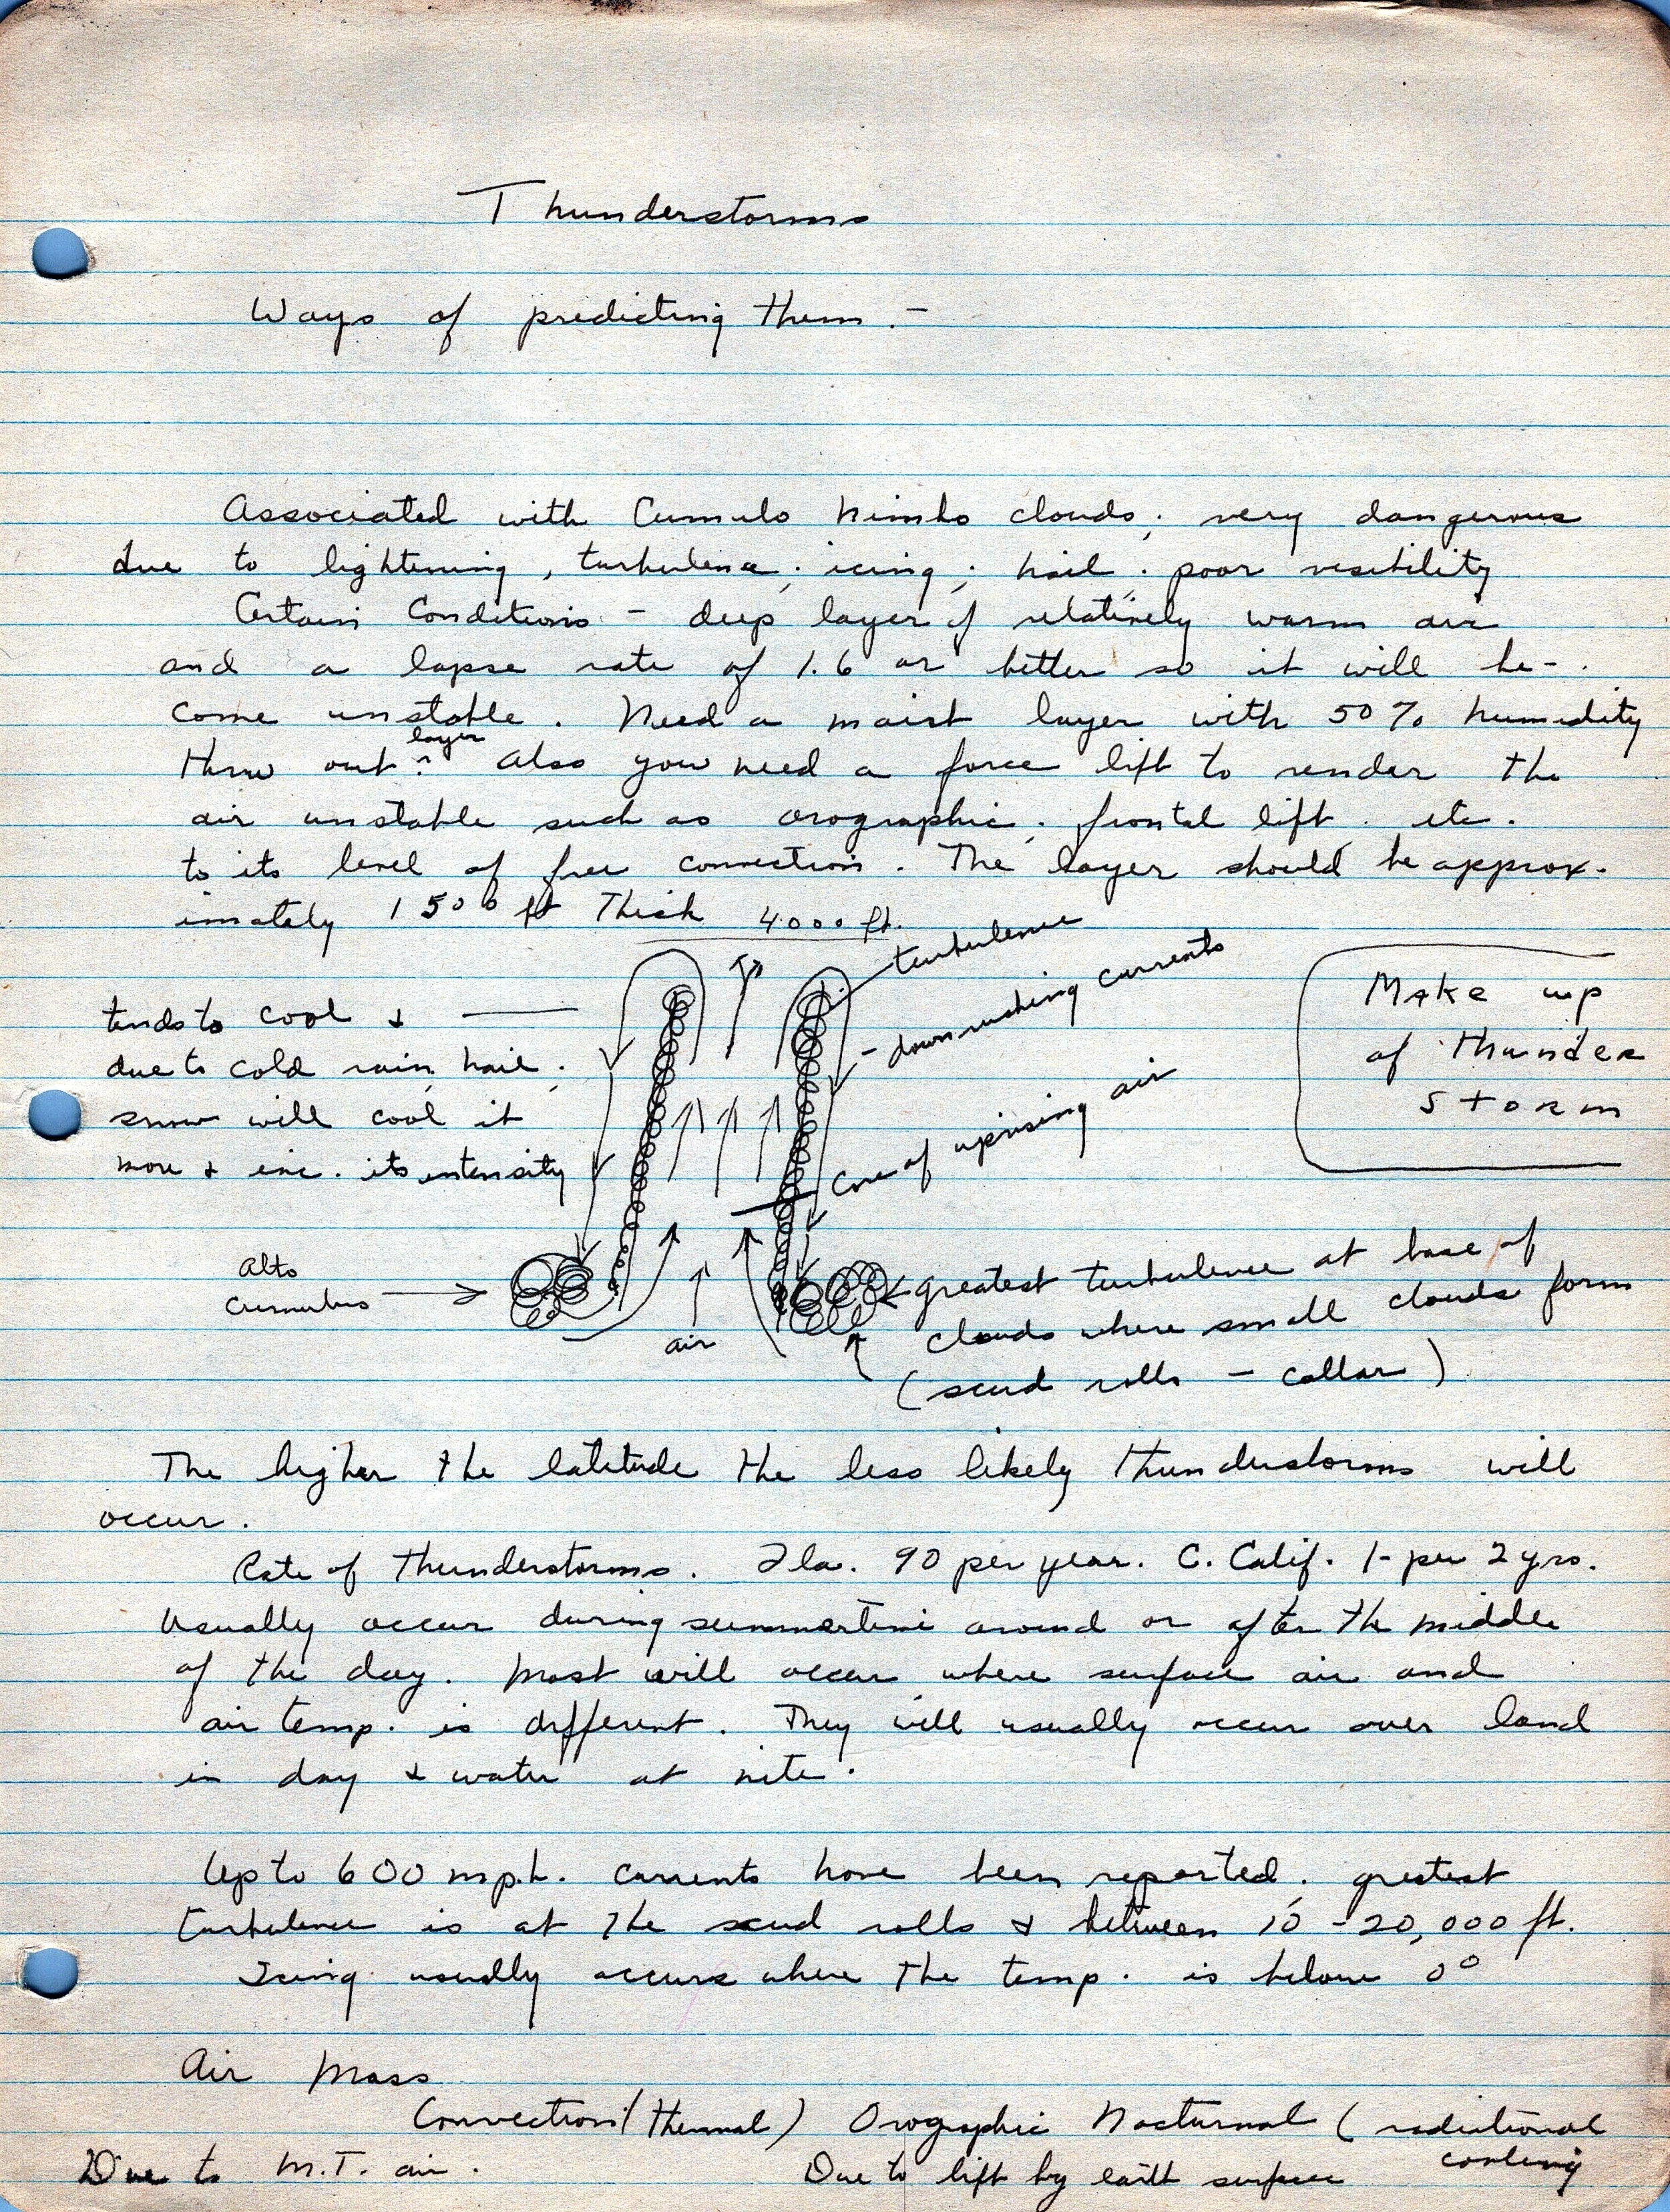 Thunderstorms
Ways of predicting them.-
Associated with Cumulo Nimbo clouds; very dangerous
due to lightening, turbulence; icing; hail; poor visibility
Certain Conditions - deep layer of relatively warm air
and a lapse rate of 1.6 or better so it will be-
come unstable. Need a moist layer with 50% humidity
thru out layer. Also you need a force lift to render the
air unstable such as orographic, frontal lift, etc.
to its level of free convection. The layer should be approx-
imately 1500 ft Thick
4000 ft.
turbulence
downrushing currents
Core of uprising air
Make up
of Thunder
Storm
tends to cool &
due to cold rain, hail,
snow will cool it
more & inc. its intensity
Alto
Cumulus
air
greatest turbulence at base of
clouds where small clouds form
(scud rolls - collar)
The higher the latitude the less likely thunderstorms will
occur.
Rate of thunderstorms. Fla. 90 per year. C. Calif. 1- per 2 yrs.
Usually occur during summertime around or after the middle
of the day. Most will occur where surface air and
air temp. is different. They will usually occur over land
in day & water at nite.
Up to 600 mph. currents have been reported; greatest
turbulence is at the scud rolls & between 10 - 20,000 ft.
Icing usually occurs where the temp. is below 0°
Air Mass
Convection (thermal) Orographic Nocturnal (radiational
cooling
Due to M.T. air. Due to lift by earth surface